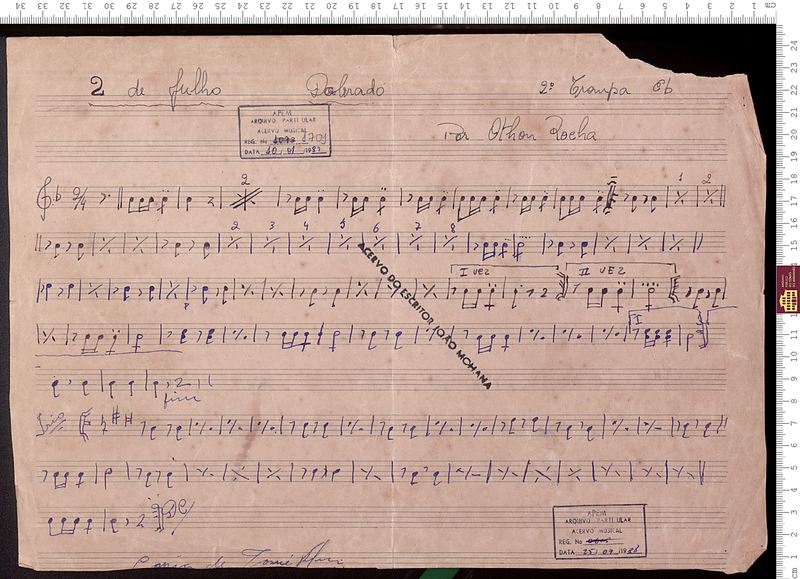 2 de Julho Dobrado 2º Trompa Eb
Por Othon Rocha
APEM
ARQUIVO PARTICULAR
ACERVO MUSICAL
REG. No
DATA
2/4
2 1 2
2 3 4 5 6 7 8
ACERVO DO ESCRITOR JOÃO MOHANA
I VEZ II VEZ
I
fim
Copia de
APEM
ARQUIVO PARTICULAR
ACERVO MUSICAL
REG. No
DATA 25/09/1986